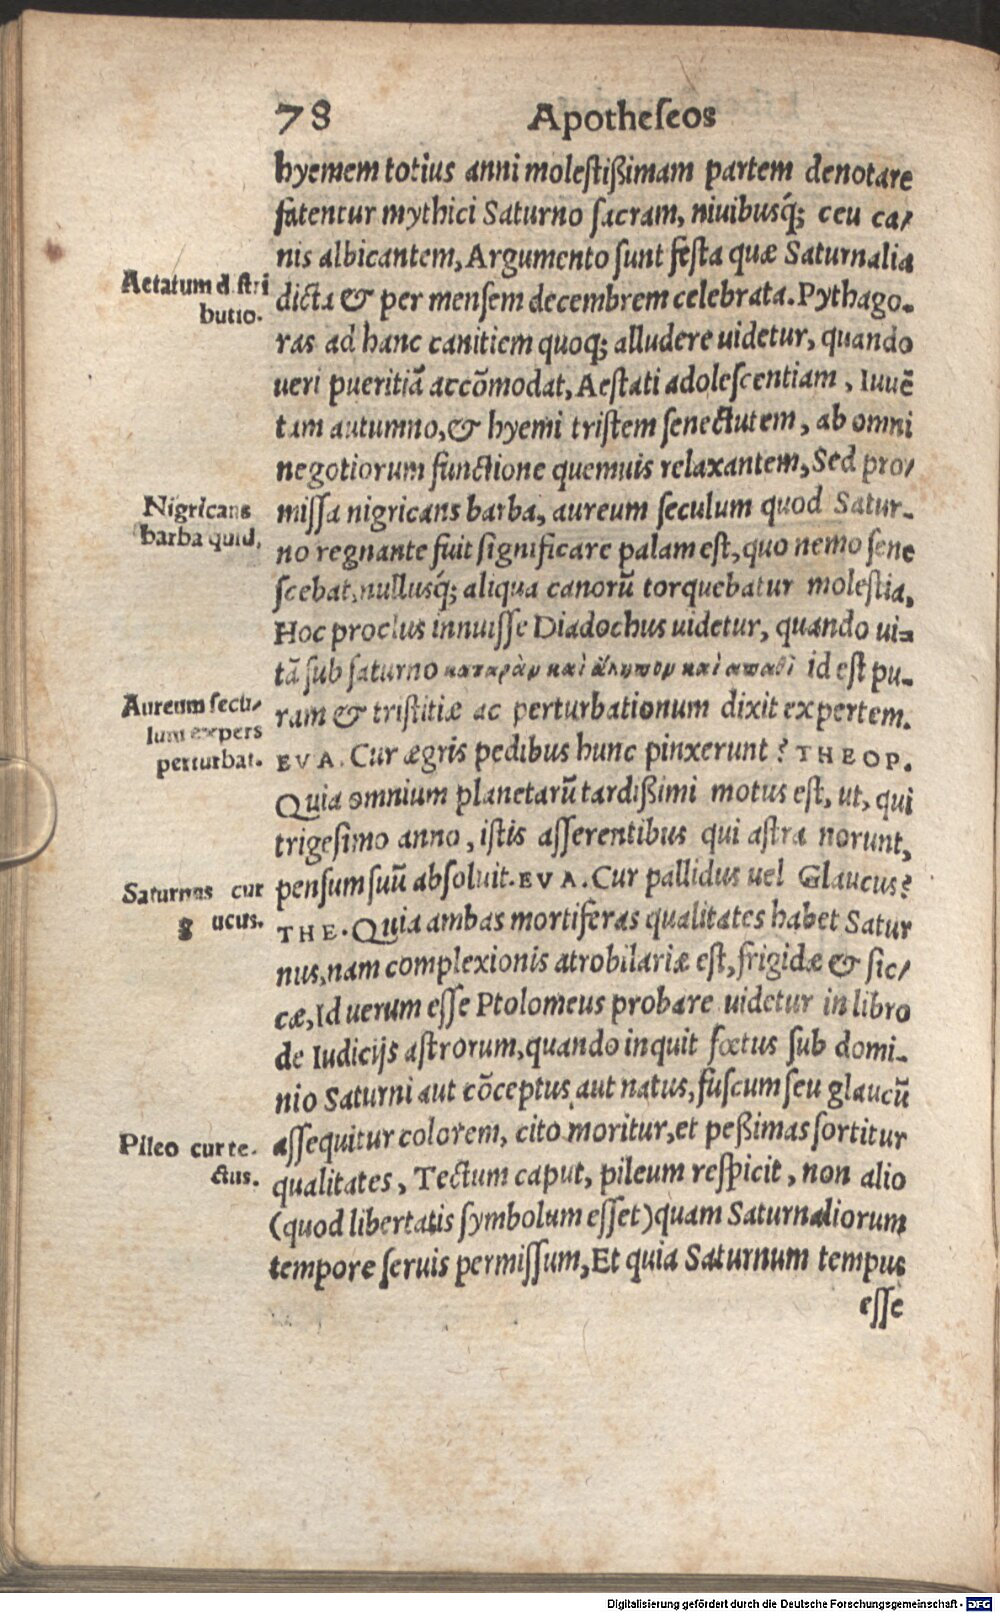 78 Apotheſeos
hyemem totius anni moleſtißimam partem denotare
fatentur mythici Saturno ſacram, niuibusq́; ceu ca/
nis albicantem, Argumento ſunt feſta quæ Saturnalia
Aetatum diſtri
butio.
dicta & per menſem decembrem celebrata. Pythago-
ras ad hanc canitiem quoq; alludere uidetur, quando
ueri pueritiā accōmodat, Aeſtati adoleſcentiam, Iuuē
tam autumno, & hyemi triſtem ſenectutem, ab omni
negotiorum functione quemuis relaxantem, Sed pro/
Nigricans
barba quid,
miſſa nigricans barba, aureum ſeculum quod Satur-
no regnante fuit ſignificare palam eſt, quo nemo ſene
ſcebat, nullusq́; aliqua canorū torquebatur moleſtia,
Hoc proclus innuiſſe Diadochus uidetur, quando ui=
tā ſub ſaturno καταρὰν καὶ ἄλυπον καὶ απαθῆ id eſt pu-
Aureum ſecu/
lum expers
perturbat.
ram & triſtitiæ ac perturbationum dixit expertem.
EVA. Cur ægris pedibus hunc pinxerunt? THEOP.
Quia omnium planetarū tardißimi motus eſt, ut, qui
trigeſimo anno, iſtis aſſerentibus qui aſtra norunt,
Saturnus cur
g ucus.
penſum ſuū abſoluit. EVA. Cur pallidus uel Glaucus?
THE. Quia ambas mortiferas qualitates habet Satur
nus, nam complexionis atrobilariæ eſt, frigidæ & ſic/
cæ, Id uerum eſſe Ptolomeus probare uidetur in libro
de Iudicijs aſtrorum, quando inquit fœtus ſub domi-
nio Saturni aut cōceptus aut natus, fuſcum ſeu glaucū
Pileo cur te-
ctus.
aſſequitur colorem, cito moritur, et peßimas ſortitur
qualitates, Tectum caput, pileum reſpicit, non alio
(quod libertatis ſymbolum eſſet) quam Saturnaliorum
tempore ſeruis permiſſum, Et quia Saturnum tempus
eſſe
Digitalisierung gefördert durch die Deutsche Forschungsgemeinschaft - DFG